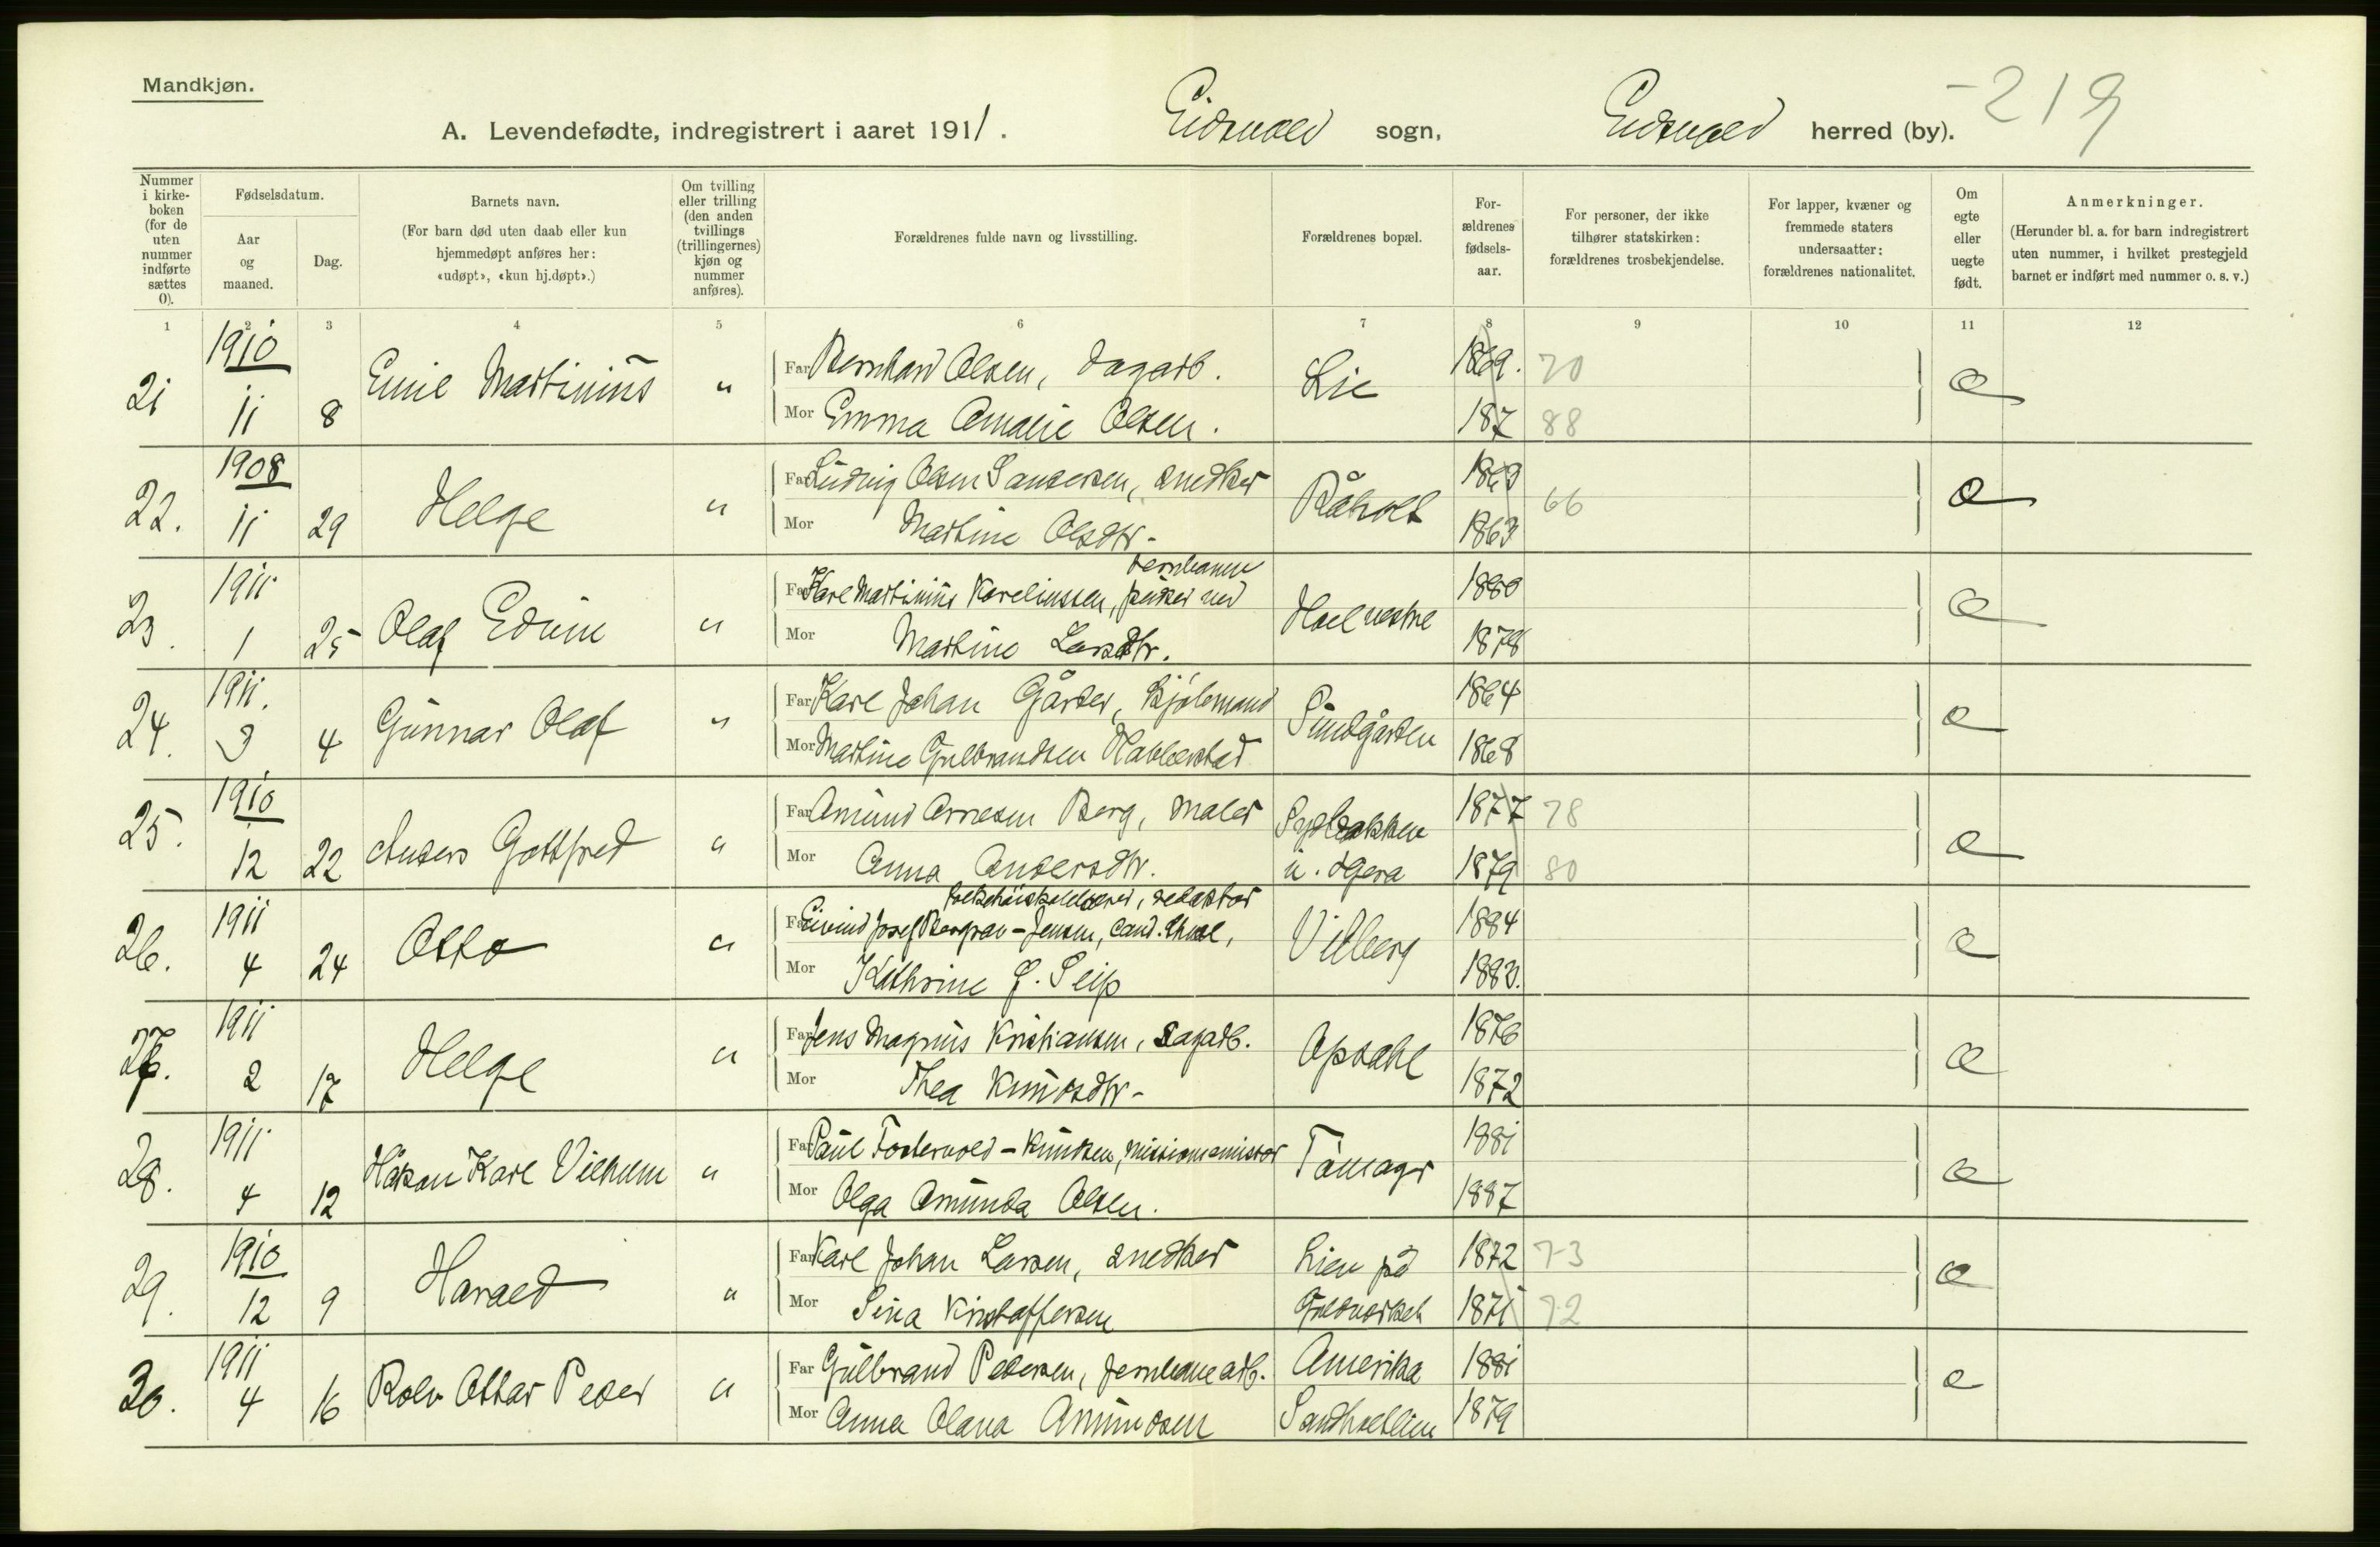 Mandkjøn.
A. Levendefødte, indregistrert i aaret 1911. Eidsvold sogn, Eidsvold herred (by). -219
Nummer i kirke-boken (for de uten nummer indførte sættes 0).
Fødselsdatum.
Aar og maaned.
Dag.
Barnets navn.
(For barn død uten daab eller kun hjemmedøpt anføres her: «udøpt», «kun hj.døpt».)
Om tvilling eller trilling (den anden tvillings (trillingernes) kjøn og nummer anføres).
Forældrenes fulde navn og livsstilling.
Forældrenes bopæl.
For-ældrenes fødsels-aar.
For personer, der ikke tilhører statskirken: forældrenes trosbekjendelse.
For lapper, kvæner og fremmede staters undersaatter: forældrenes nationalitet.
Om egte eller uegte født.
Anmerkninger.
(Herunder bl. a. for barn indregistrert uten nummer, i hvilket prestegjeld barnet er indført med nummer o. s. v.)
1 2 3 4 5 6 7 8 9 10 11 12
21 1910 11 8 Emil Martinius "
Far Bernhard Olsen, dagarb. Lie 1869. 70 e
Mor Emma Amalie Olsen. 187 88
22. 1908 11 29 Helge "
Far Ludvig Olsen Sandersen, snedker Råholt 1863 66 e
Mor Martine Olsdtr. 1863
23. 1911 1 25 Olaf Edvin "
Far Karl Martinius Karelinssen, jernbane Hoel vestre 1880 e
Mor Martine Larsdtr. 1878
24. 1911. 3 4 Gunnar Olaf "
Far Karl Johan Gårder, Sundgården 1864 e
Mor Martine Gulbrandsen Habberstad 1868
25. 1910 12 22 Anders Gottfred "
Far Amund Arnesen Berg, maler 1877 78 e
Mor Anna Andersdtr. 1879 80
26. 1911 4 24 Otto "
folkehøiskolelærer, redaktør
Far Eivind Josef Berggrav-Jensen, cand. theol, Vilberg 1884 e
Mor Kathrine J. Seip 1883.
27. 1911 2 17 Helge "
Far Jens Magnus Kristiansen, dagarb. Opsahl 1876 e
Mor Thea Knudsdtr. 1872
28. 1911 4 12 Håkon Karl Vilhelm "
Far Paul Fostervold-Knudsen, missionsemissær 1881 e
Mor Olga Amunda Olsen. 1887
29. 1910 12 9 Harald "
Far Karl Johan Larsen, snedker Lien på 1872 73 e
Mor Sina Kristoffersen Guldverket 1871 72
30. 1911 4 16 Rolv Ottar Peder "
Far Gulbrand Pedersen, jernbanearb. Amerika 1881 e
Mor Anna Olava Amundsen Sandholtlien 1879